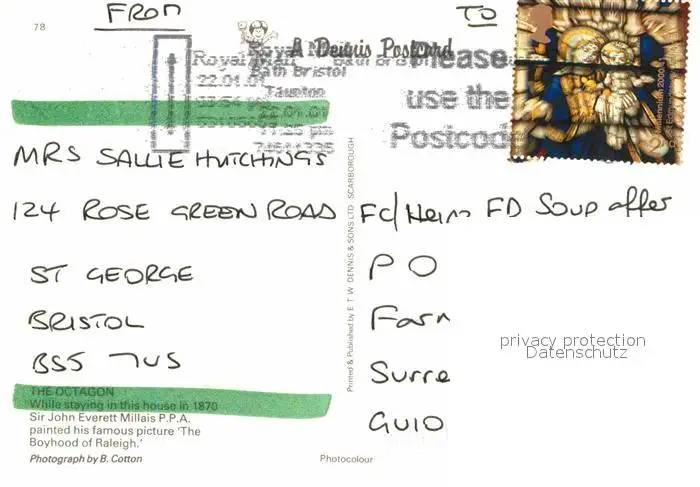 78
FROM
TO
A Dennis Postcard
Royal Mail
Bath Bristol
Taunton
22.01.01
Please
use the
Postcode
Millennium 2000
MRS SALLIE HUTCHINGS
124 ROSE GREEN ROAD
ST GEORGE
BRISTOL
BS5 7US
FC/Heinz FD SOUP offer
PO
Farn
Surre
GU10
THE OCTAGON
While staying in this house in 1870
Sir John Everett Millais P.P.A.
painted his famous picture 'The
Boyhood of Raleigh.'
Photograph by B. Cotton
Photocolour
Printed & Published by E T W DENNIS & SONS LTD SCARBOROUGH
privacy protection
Datenschutz